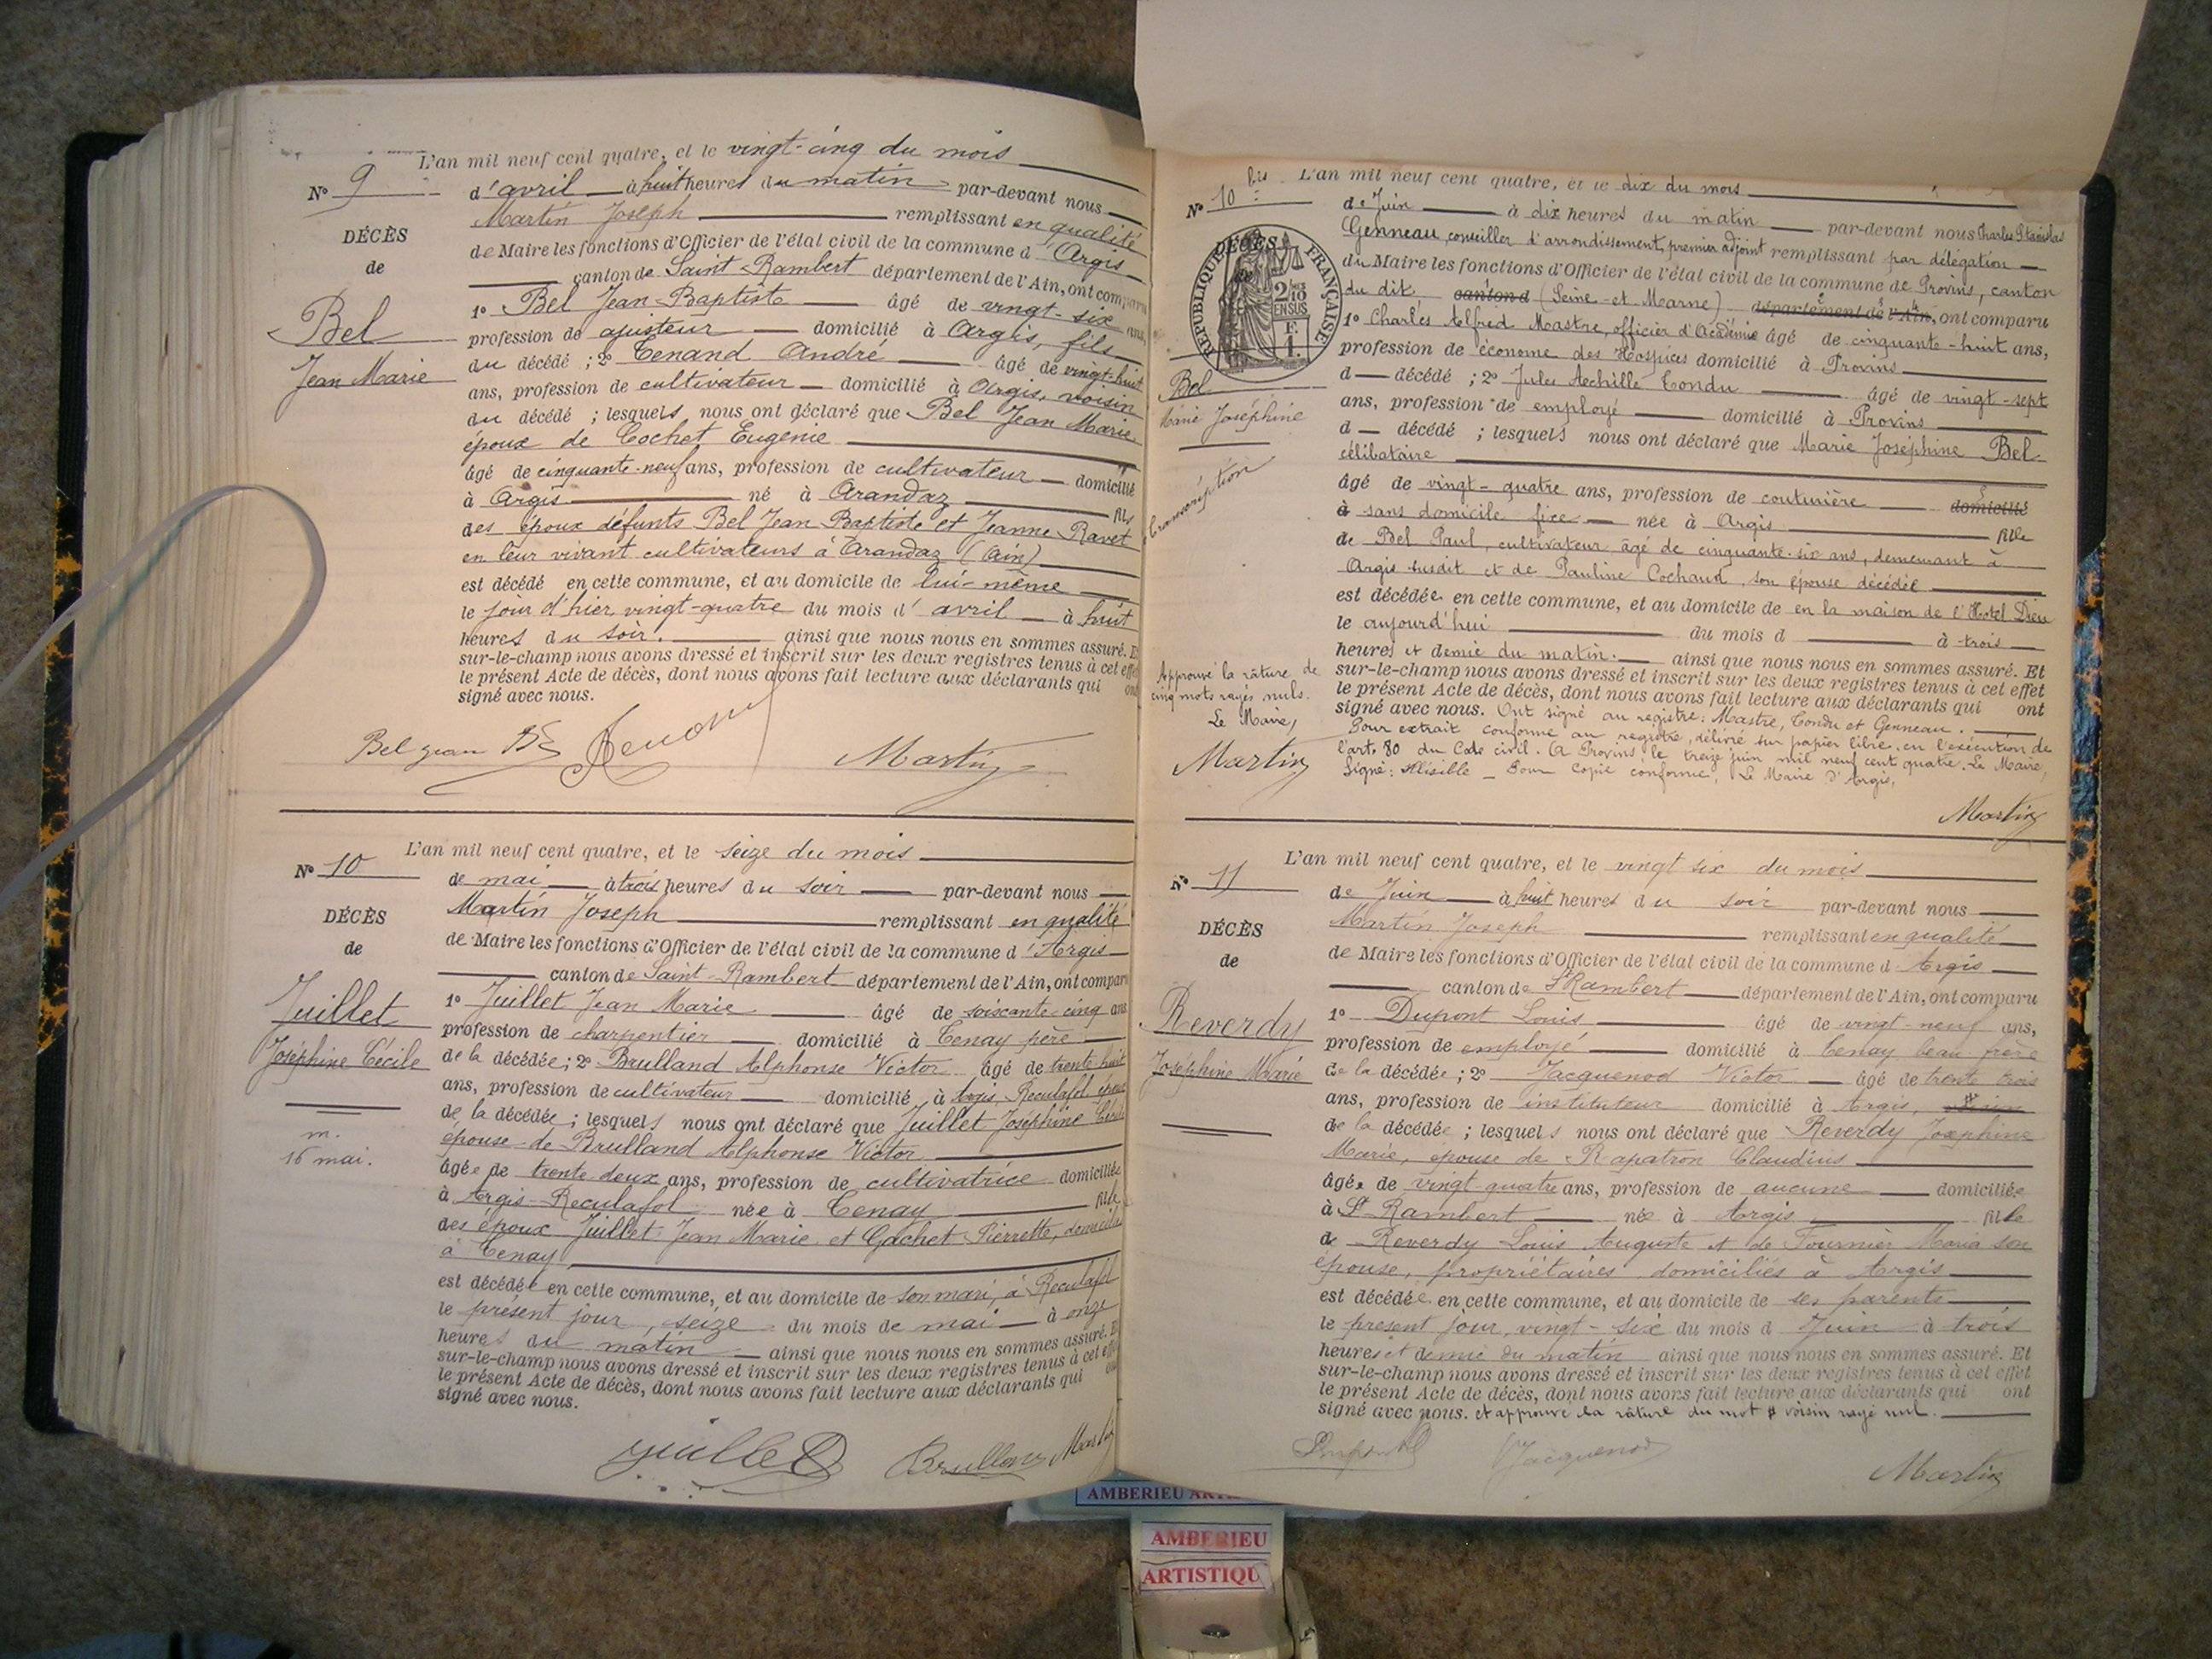 L'an mil neuf cent quatre, et le vingt-cinq du mois
N° 9
d'avril à huit heures du matin par-devant nous
Martin Joseph remplissant en qualité
DÉCÈS
de Maire les fonctions d'Officier de l'état civil de la commune d'Argis
de
canton de Saint-Rambert département de l'Ain, ont comparu
Bel
1° Bel Jean-Baptiste âgé de vingt-six ans,
profession de ajusteur domicilié à Argis, fils
Jean Marie
du décédé ; 2° Tenand André âgé de vingt-huit
ans, profession de cultivateur domicilié à Argis, voisin
du décédé ; lesquels nous ont déclaré que Bel Jean Marie,
époux de Cochet Eugénie
âgé de cinquante-neuf ans, profession de cultivateur domicilié
à Argis né à Arandaz fils
des époux défunts Bel Jean Baptiste et Jeanne Ravet
en leur vivant cultivateurs à Arandaz (Ain)
est décédé en cette commune, et au domicile de lui-même
le jour d'hier, vingt-quatre du mois d'avril à huit
heures du soir. ainsi que nous nous en sommes assuré. Et
sur-le-champ nous avons dressé et inscrit sur les deux registres tenus à cet effet
le présent Acte de décès, dont nous avons fait lecture aux déclarants qui ont
signé avec nous.
Bel Jean Bte Tenand Martin
L'an mil neuf cent quatre, et le seize du mois
N° 10
de mai à trois heures du soir par-devant nous
Martin Joseph remplissant en qualité
DÉCÈS
de Maire les fonctions d'Officier de l'état civil de la commune d'Argis
de
canton de Saint-Rambert département de l'Ain, ont comparu
Juillet
1° Juillet Jean Marie âgé de soixante-cinq ans
profession de charpentier domicilié à Tenay père
Joséphine Cécile
de la décédée ; 2° Brulland Alphonse Victor âgé de trente huit
ans, profession de cultivateur domicilié à Argis, Reculafol, époux
de la décédée ; lesquels nous ont déclaré que Juillet Joséphine Cécile
m.
épouse de Brulland Alphonse Victor
16 mai.
âgée de trente deux ans, profession de cultivatrice domiciliée
à Argis-Reculafol née à Tenay fille
des époux Juillet Jean Marie et Gachet Pierrette, domiciliés
à Tenay
est décédée en cette commune, et au domicile de son mari, à Reculafol
le présent jour, seize du mois de mai à onze
heures du matin ainsi que nous nous en sommes assuré. Et
sur-le-champ nous avons dressé et inscrit sur les deux registres tenus à cet effet
le présent Acte de décès, dont nous avons fait lecture aux déclarants qui ont
signé avec nous.
Juillet Brulland Martin
L'an mil neuf cent quatre, et le dix du mois
N° 10 bis
de Juin à dix heures du matin par-devant nous Charles Stanislas
Genneau, conseiller d'arrondissement, premier adjoint remplissant par délégation
DÉCÈS
RÉPUBLIQUE FRANÇAISE
2/10 EN SUS
1 F.
du Maire les fonctions d'Officier de l'état civil de la commune de Provins, canton
du dit canton d (Seine-et-Marne) département de l'Ain, ont comparu
1° Charles Alfred Mastre, officier d'Académie âgé de cinquante-huit ans,
profession de économe des Hospices domicilié à Provins
Bel
d décédé ; 2° Jules Achille Tondu âgé de vingt-sept
Marie Joséphine
ans, profession de employé domicilié à Provins
d décédé ; lesquels nous ont déclaré que Marie Joséphine Bel
célibataire
Transcription
âgé de vingt-quatre ans, profession de couturière domicilié
à sans domicile fixe née à Argis fille
de Bel Paul, cultivateur, âgé de cinquante-six ans, demeurant à
Argis susdit et de Pauline Cochaud, son épouse décédée
est décédée en cette commune, et au domicile de en la maison de l'Hotel Dieu
le aujourd'hui du mois d à trois
heures et demie du matin. ainsi que nous nous en sommes assuré. Et
Approuvé la râture de
cinq mots rayés nuls.
Le Maire,
Martin
sur-le-champ nous avons dressé et inscrit sur les deux registres tenus à cet effet
le présent Acte de décès, dont nous avons fait lecture aux déclarants qui ont
signé avec nous. Ont signé au registre : Mastre, Tondu et Genneau.
Pour extrait conforme au registre, délivré sur papier libre, en l'exécution de
l'art. 80 du Code civil. A Provins le treize juin mil neuf cent quatre. Le Maire,
Signé : Illisible – Pour copie conforme, Le Maire d'Argis,
Martin
L'an mil neuf cent quatre, et le vingt six du mois
N° 11
de Juin à huit heures du soir par-devant nous
Martin Joseph remplissant en qualité
DÉCÈS
de Maire les fonctions d'Officier de l'état civil de la commune d Argis
de
canton de St Rambert département de l'Ain, ont comparu
Reverdy
1° Dupont Louis âgé de vingt-neuf ans,
profession de employé domicilié à Tenay beau frère
Joséphine Marie
de la décédée ; 2° Jacquenod Victor âgé de trente trois
ans, profession de instituteur domicilié à Argis, voisin
de la décédée ; lesquels nous ont déclaré que Reverdy Joséphine
Marie, épouse de Rapatron Claudius
âgée de vingt-quatre ans, profession de aucune domiciliée
à St Rambert née à Argis fille
de Reverdy Louis Auguste et de Fournier Maria son
épouse, propriétaires domiciliés à Argis
est décédée en cette commune, et au domicile de ses parents
le présent jour, vingt-six du mois d Juin à trois
heures et demie du matin ainsi que nous nous en sommes assuré. Et
sur-le-champ nous avons dressé et inscrit sur les deux registres tenus à cet effet
le présent Acte de décès, dont nous avons fait lecture aux déclarants qui ont
signé avec nous. et approuvé la râture du mot voisin rayé nul.
Dupont Jacquenod Martin
AMBERIEU
AMBERIEU
ARTISTIQU